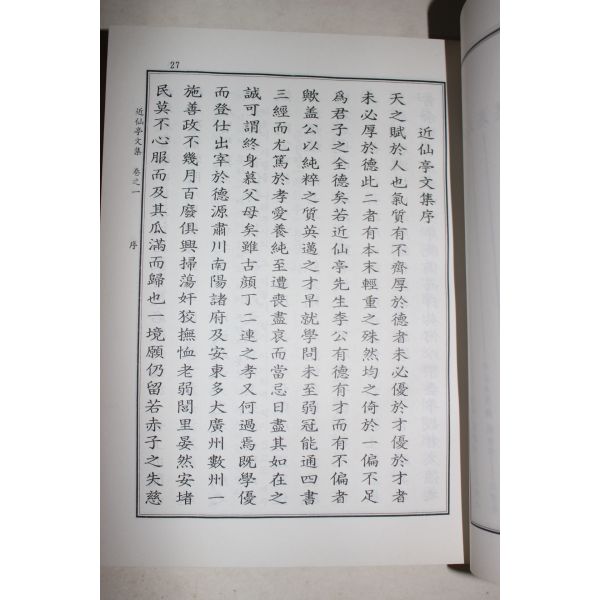 27
近仙亭文集序
天之賦於人也氣質有不齊厚於德者未必優於才優於才者
未必厚於德此二者有本末輕重之殊然均之倚於一偏不足
爲君子之全德矣若近仙亭先生李公有德有才而有不偏者
歟盖公以純粹之質英邁之才早就學問未至弱冠能通四書
三經而尤篤於孝愛養純至遭喪盡哀而當忌日盡其如在之
誠可謂終身慕父母矣雖古顔丁二連之孝又何過焉既學優
而登仕出宰於德源肅川南陽諸府及安東多大廣州數州一
施善政不幾月百廢俱興掃蕩奸狡撫恤老弱閭里晏然安堵
民莫不心服而及其瓜滿而歸也一境願仍留若赤子之失慈
近仙亭文集 卷之一 序